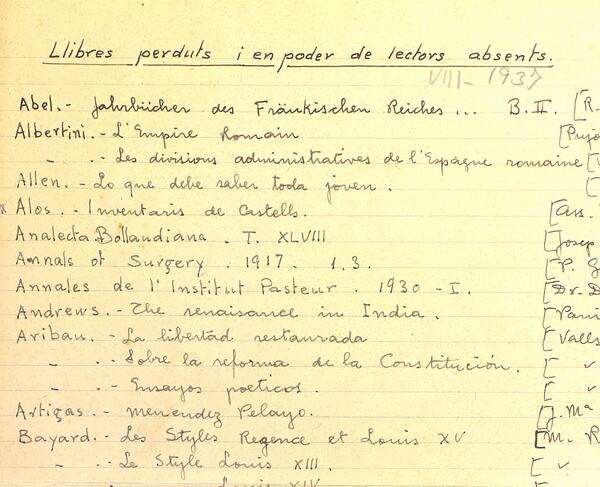 Llibres perduts i en poder de lectors absents.
VIII - 1937
Abel.- Jahrbücher des Fränkischen Reiches ... B. II. [R.
Albertini.- L'Empire Romain [Pujo
- .- Les divisions administratives de l'Espagne romaine [
Allen.- Lo que debe saber toda joven. [
x Alos.- Inventaris de Castells. [Ass.
Analecta Bollandiana. T. XLVIII [Josep
Annals of Surgery. 1917. 1.3. [P. G
Annales de l'Institut Pasteur. 1930 - I. [Dr. D
Andrews.- The renaisance in India. [Pani
Aribau.- La libertad restaurada [Valls
- .- Sobre la reforma de la Constitución. [ v
- .- Ensayos poeticos. [ v
Artigas.- Menendez Pelayo. [J. Mª
Bayard.- Les Styles Regence et Louis XV [M. R
- .- Le Style Louis XIII. [ v.
Louis XIV [